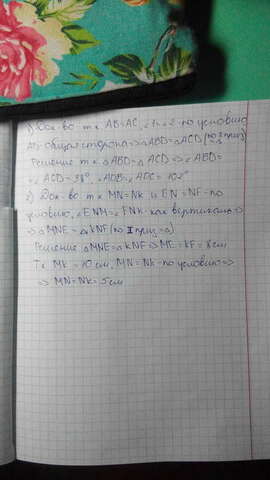 1) Док-во: т к AB=AC, ∠1=∠2 - по условию
AD общая сторона=>△ABD=△ACD (по I приз)
Решение т.к △ABD=△ACD => ∠ABD=
=∠ACD=38°, ∠ADB=∠ADC=102°
2) Док-во: т к MN=NK и EN=NF-по
условию, ∠ENM=∠FNK как вертикал
=> △MNE=△KNF (по I приз=△)
Решение △MNE=△KNF => ME=KF=8см
Тк MK=10см, MN=NK-по условию=>
=> MN=NK=5см